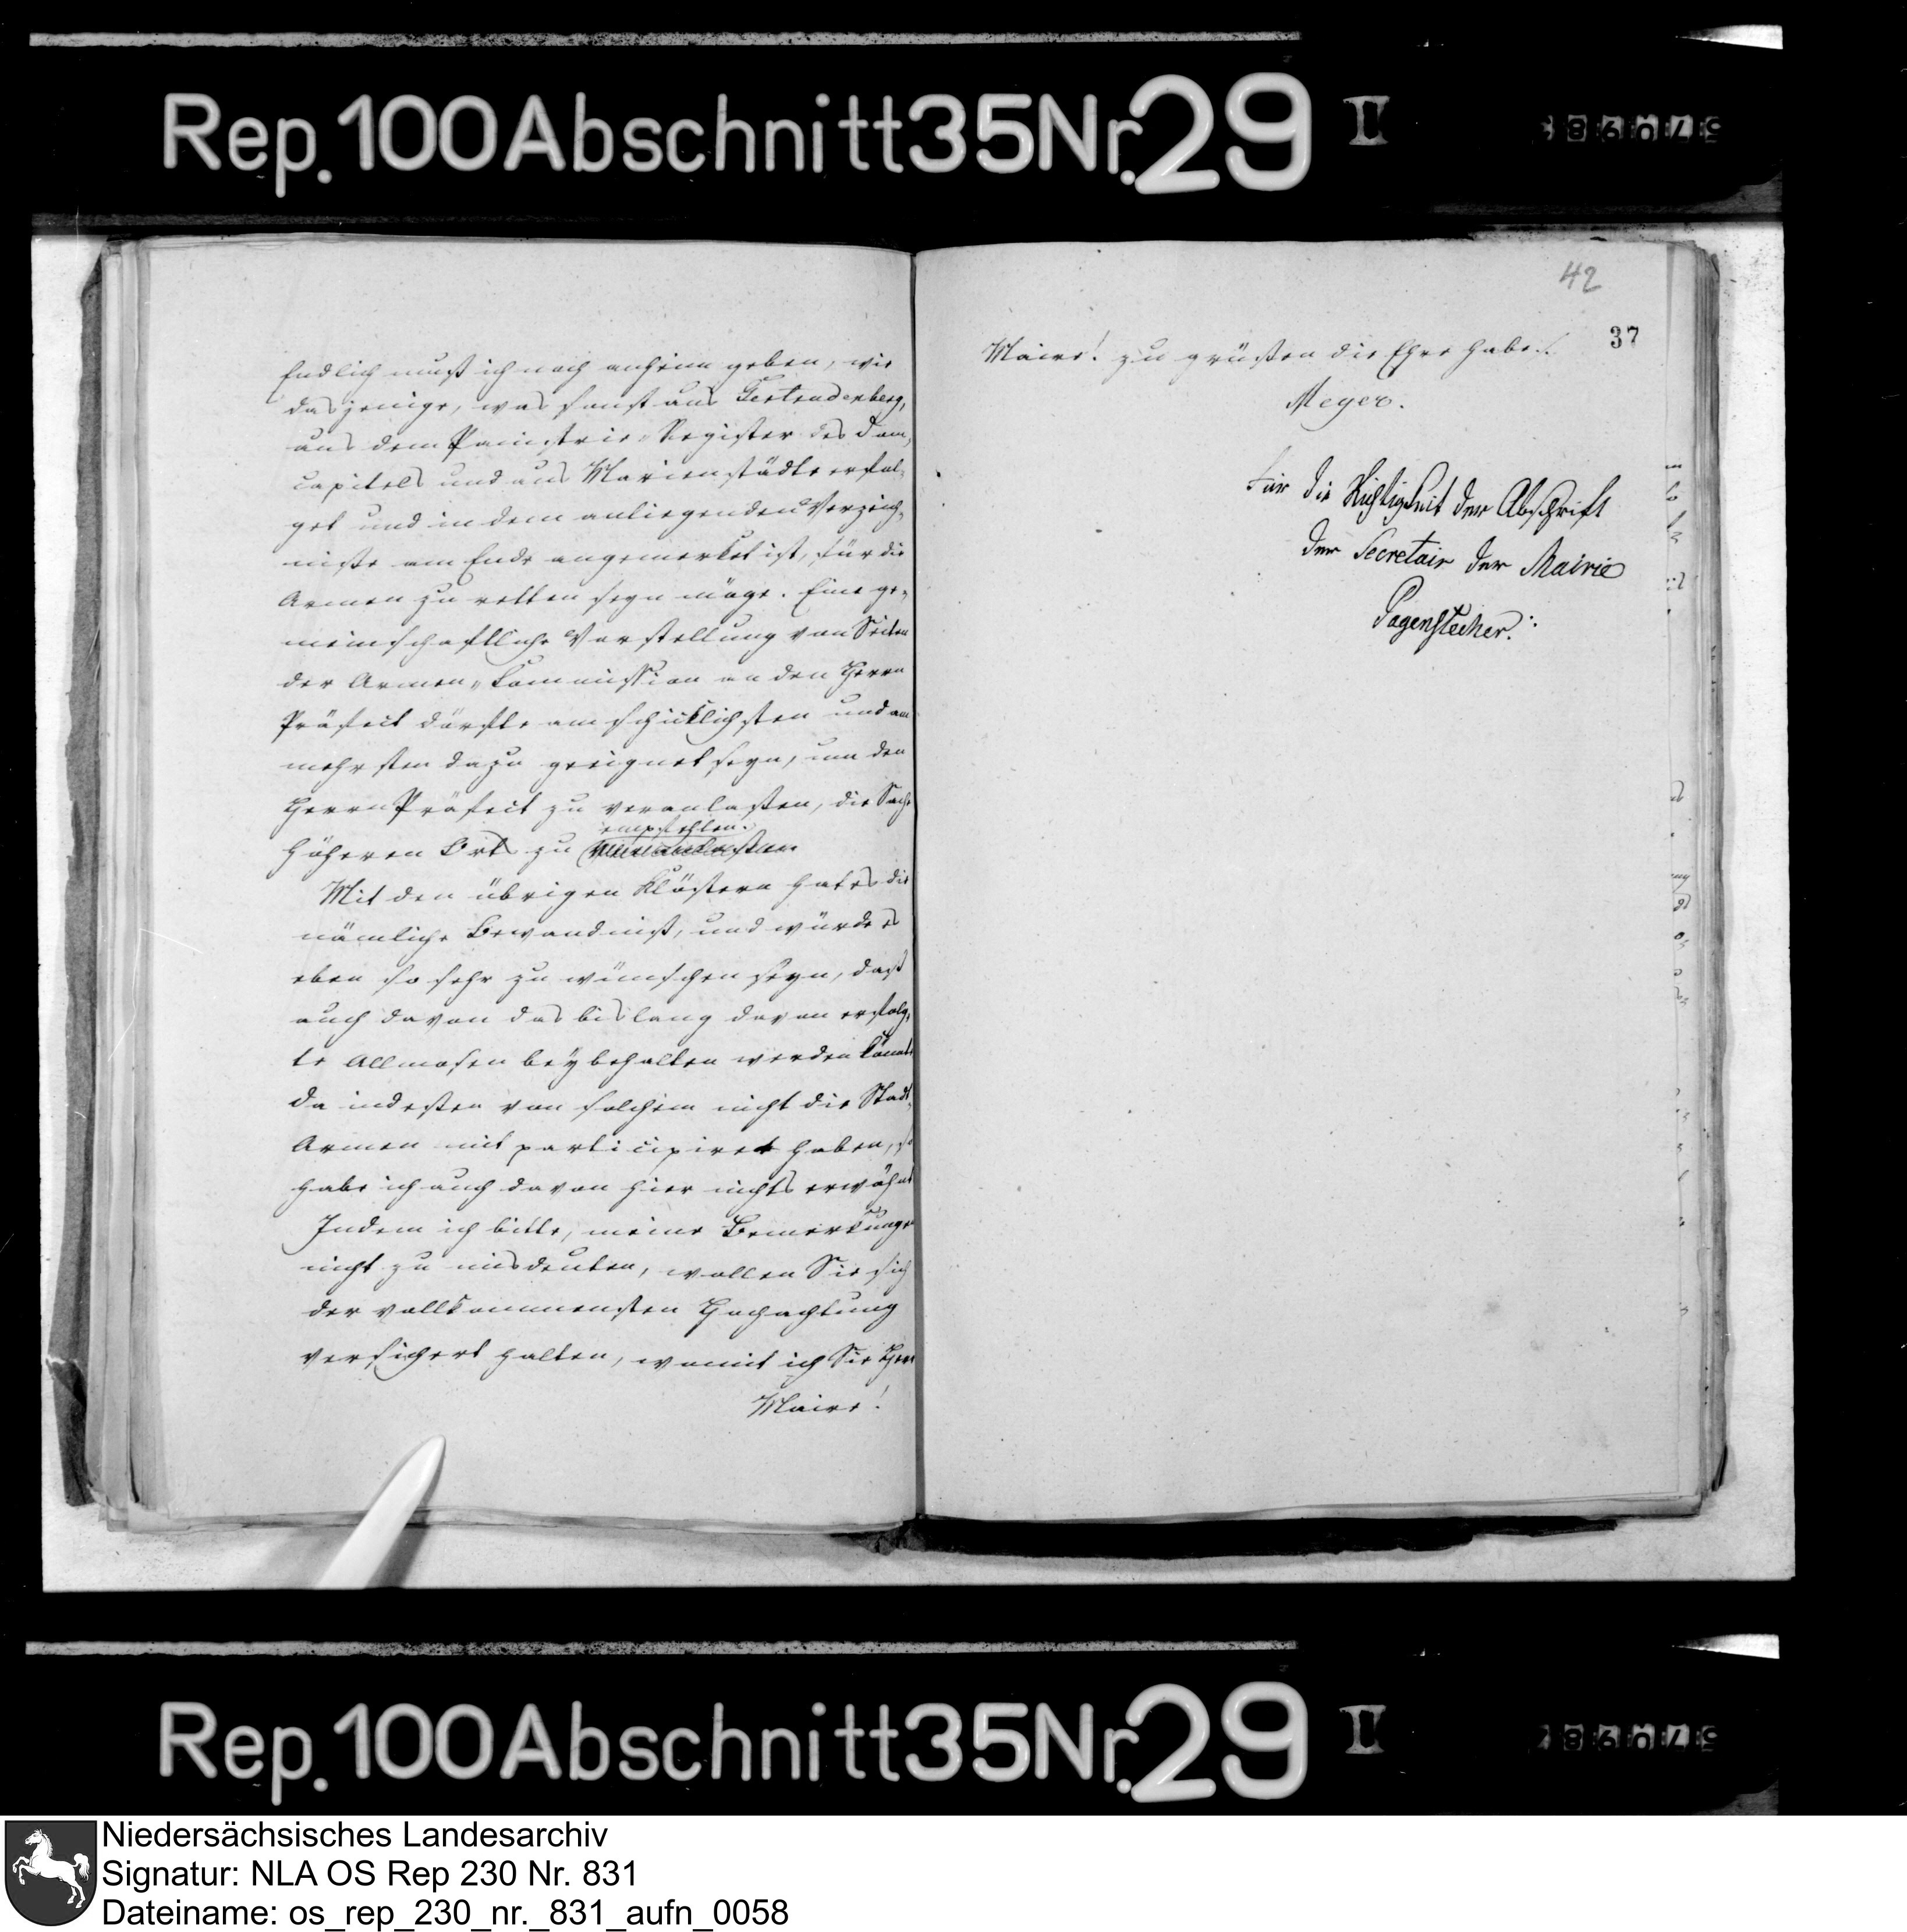 Rep. 100 Abschnitt 35 Nr. 29 II
Endlich muß ich noch anheim geben, wie
dasjenige, was sonst aus Gertrudenberg,
aus dem Register des Dom„
capitels und aus Marienstädte erfol„
get und in dem anliegenden Verzeich„
niße am Ende angemerket ist, für die
Armen zu retten seyn möge. Eine ge„
meinschaftliche Vorstellung von Seiten
der Armen„Commission an den Herrn
Präfect dürfte am schicklichsten und am
mehrsten dazu geeignet seyn, um den
Herrn Präfect zu veranlaßen, die Sache
empfehlen.
höheren Orts zu veranlaßen
Mit den übrigen Klöstern hat es die
nämliche Bewandniß, und würde es
eben so sehr zu wünschen seyn, daß
auch davon das bislang davon erfolg„
te Allmosen beybehalten werden könnte
da indeßen von solchem nicht die Stadt„
Armen mit participiret haben, so
habe ich auch davon hier nichts erwähnt
Indem ich bitte, meine Bemerkungen
nicht zu misdeuten, wollen Sie sich
der vollkommensten Hochachtung
versichert halten, womit ich Sie Herr
Maire!
42
37
Maire! zu grüßen die Ehre habe.
Meyer.
Für die Richtigkeit der Abschrift
der Secretair der Mairie
Pagenstecher.
Rep. 100 Abschnitt 35 Nr. 29 II
Niedersächsisches Landesarchiv
Signatur: NLA OS Rep 230 Nr. 831
Dateiname: os_rep_230_nr._831_aufn_0058